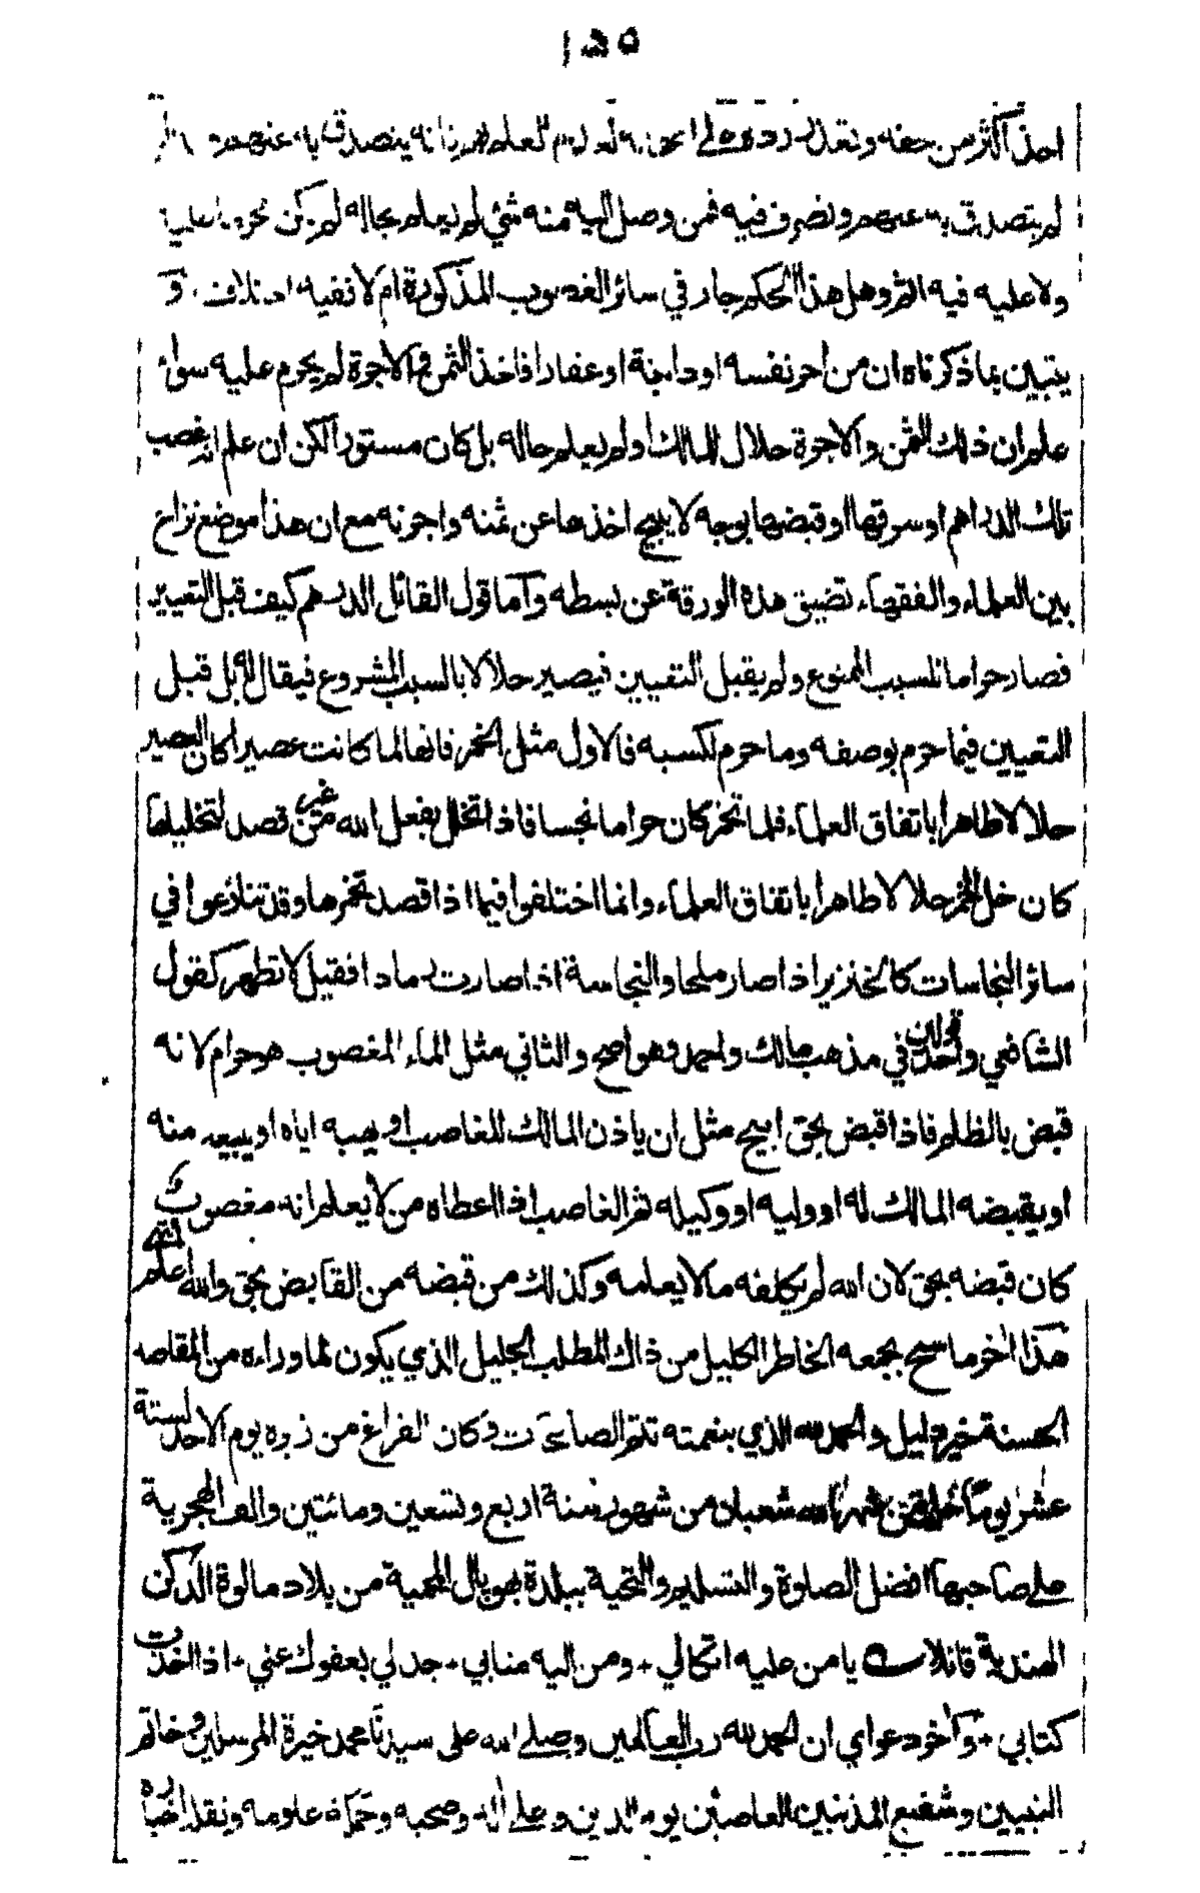 ١٥٥
اخذ اكثر من حقه وتعذر رده الى اصحابه لعدم العلم بهم فانه يتصدق به عنهم
لم يتصدق به عنهم وتصرف فيه فمن وصل اليه منه شئ لم يعلم بحاله لم يكن محرما عليه
ولا عليه فيه اثم وهل هذا الحكم جار في سائر الغصوب المذكورة ام لا ففيه اختلاف و
يتبين بما ذكرناه ان من اجر نفسه او دابته او عقارا فاخذ الثمن والاجرة لم يحرم عليه سواء
علم ان ذلك الثمن والاجرة حلال للمالك او لم يعلم حاله بل كان مستورا لكن ان علم انه غصب
تلك الدراهم او سرقها او قبضها بوجه لا يبيح اخذها عن ثمنه واجرته مع ان هذا موضع نزاع
بين العلماء والفقهاء تضيق هذه الورقة عن بسطه واما قول القائل الدرهم كيف قبل التعيين
فصار حراما بالسبب الممنوع ولم يقبل التعيين فيصير حلالا بالسبب المشروع فيقال له بل قبل
التعيين فيما حرم بوصفه وما حرم لكسبه فالاول مثل الخمر فانها لما كانت عصيرا كان العصير
حلالا طاهرا باتفاق العلماء فلما تخمر كان حراما نجسا فاذا تخلل بفعل الله من غير قصد لتخليلها
كان خل الخمر حلالا طاهرا باتفاق العلماء وانما اختلفوا فيما اذا قصد تخمرها وقد تنازعوا في
سائر النجاسات كالخنزير اذا صار ملحا والنجاسة اذا صارت رمادا فقيل لا تطهر كقول
الشافعي واحد القولين في مذهب مالك واحمد وهو اصح والثاني مثل الماء المغصوب هو حرام لانه
قبض بالظلم فاذا قبض بحق ابيح مثل ان ياذن المالك للغاصب او يهبه اياه او يبيعه منه
او يقبضه المالك له او وليه او وكيله ثم الغاصب اذا اعطاه من لا يعلم انه مغصوب
كان قبضه بحق لان الله لم يكلفه ما لا يعلمه وكذلك من قبضه من القابض بحق والله اعلم انتهى
هذا اخر ما سمح بجمعه الخاطر الكليل من ذاك المطلب الجليل الذي يكون لما وراءه من المقاصد
الحسنة خير دليل والحمد لله الذي بنعمته تتم الصالحات وكان الفراغ من زبره يوم الاحد لستة
عشر يوما خلت من شهر الله شعبان من شهور سنة اربع وتسعين ومائتين والف الهجرية
على صاحبها افضل الصلوة والتسليم والتحية ببلدة بهوپال المحمية من بلاد مالوة الدكن
الهندية قائلا يا من عليه اتكالي + ومن اليه منابي + جد لي بعفوك عني + اذا اخذت
كتابي + واخر دعواي ان الحمد لله رب العالمين وصلى الله على سيدنا محمد خيرة المرسلين وخاتم
النبيين وشفيع المذنبين العاصين يوم الدين وعلى اله وصحبه وحملة علومه ونقلة اخباره